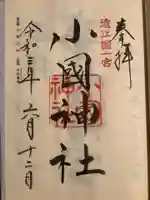 奉拝
遠江國一宮
小國神社
令和三年六月十二日